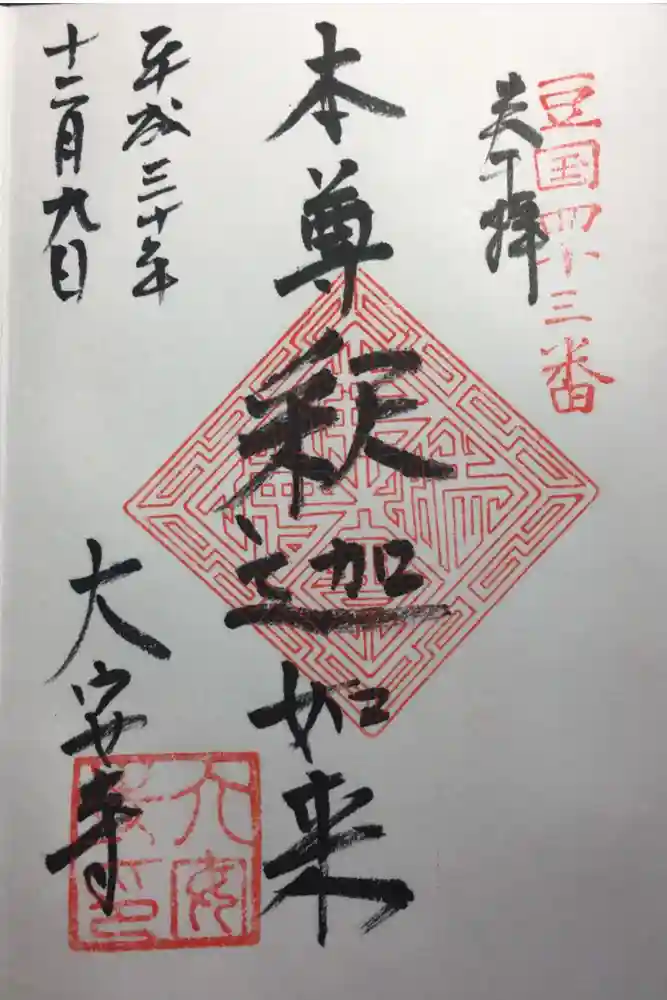 豆国四十三番
奉拝
本尊釈迦如来
平成三十年
十二月九日
大安寺